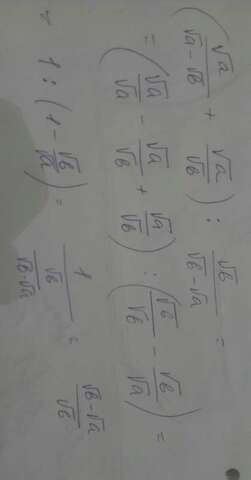 (√a/(√a-√b) + √a/√b) : √b/(√b-√a) =
= (√a/√a - √a/√b + √a/√b) : (√b/√b - √b/√a) =
= 1 : (1 - √b/√a) = 1/(√b/(√b-√a)) = (√b-√a)/√b